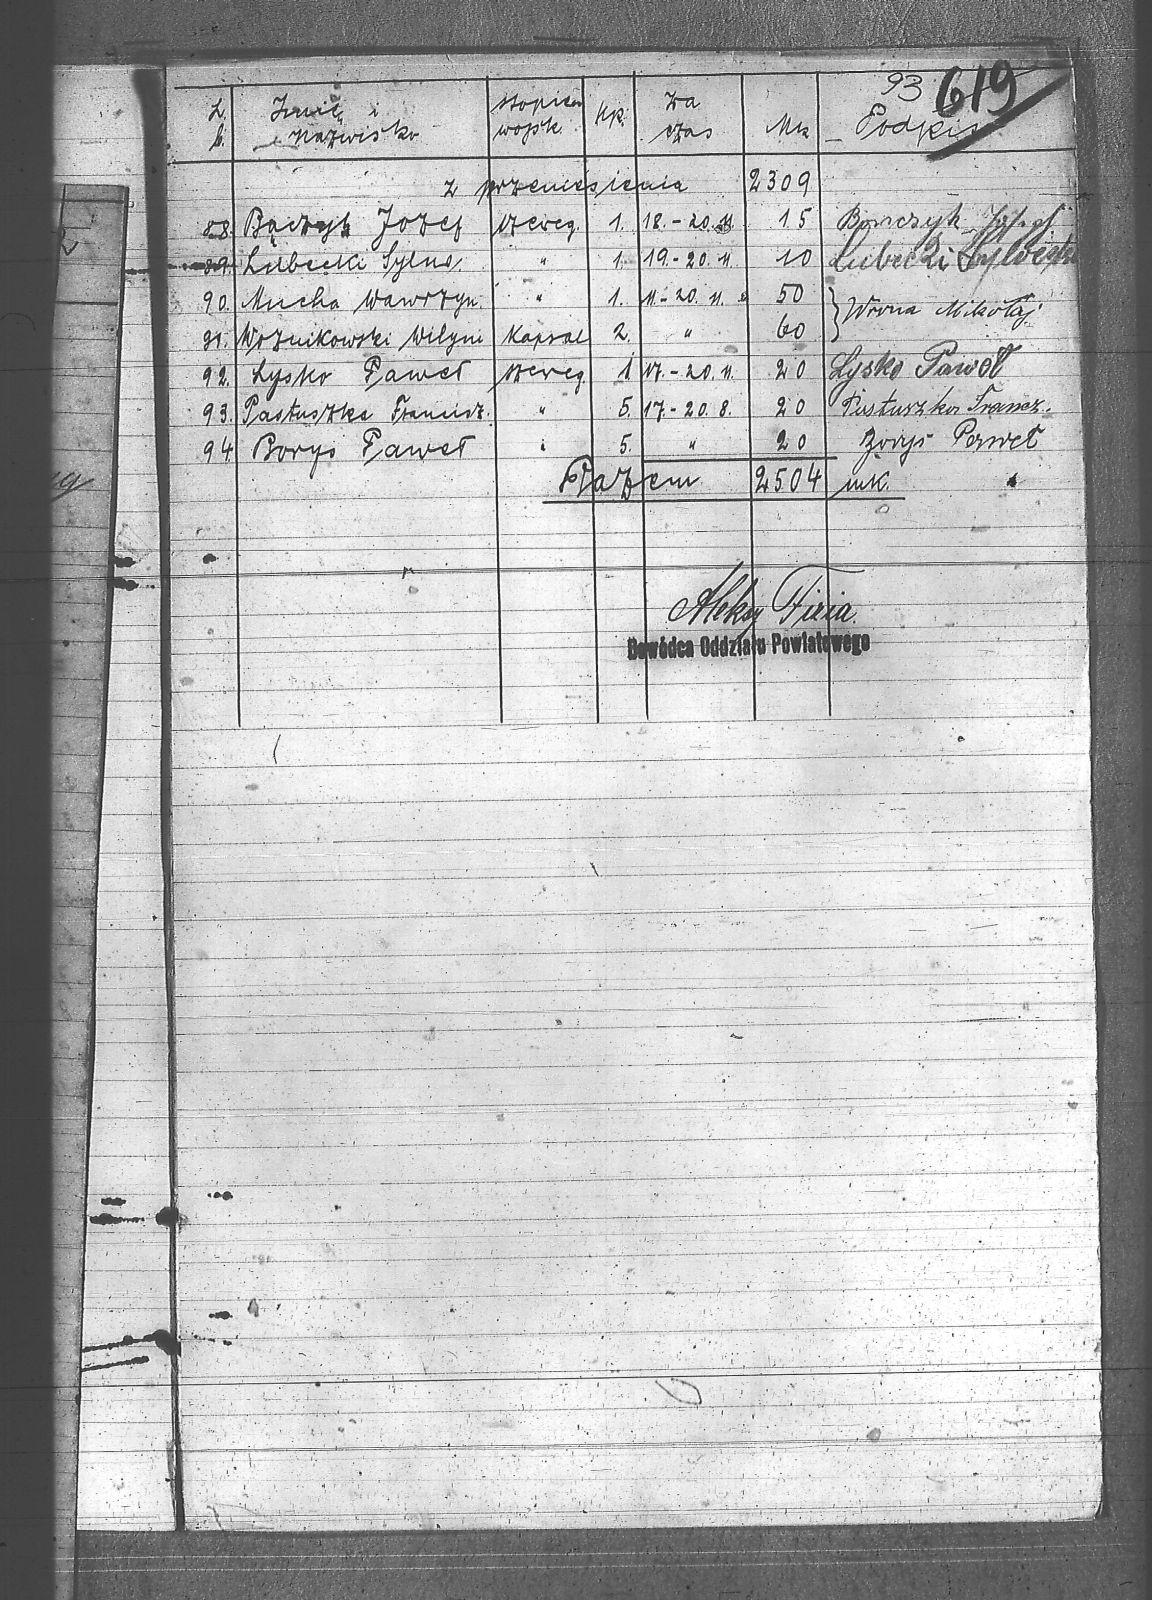 93 619
L. b. Imię i Nazwisko stopień wojsk. Kp. za czas Mk Podpis
z przeniesienia 2309
88. Bączyk Józef szereg. 1. 18.-20.11. 15 Bonczyk Józef
89. Lubecki Sylws. " 1. 19.-20.11. 10 Lubecki Sylwester
90. Mucha Wawrzyn. " 1. 11.-20.11. 50 } Wrona Mikołaj
91. Woznikowski Wilym Kapral 2. " 60
92. Lysko Paweł szereg. 1 17.-20.11. 20 Lysko Paweł
93. Pastuszka Francisz. " 5. 17.-20.8. 20 Pastuszka Francz.
94 Borys Paweł " 5. " 20 Borys Paweł
Razem 2504 mk.
Aleksy
Dowódca Oddziału Powiatowego